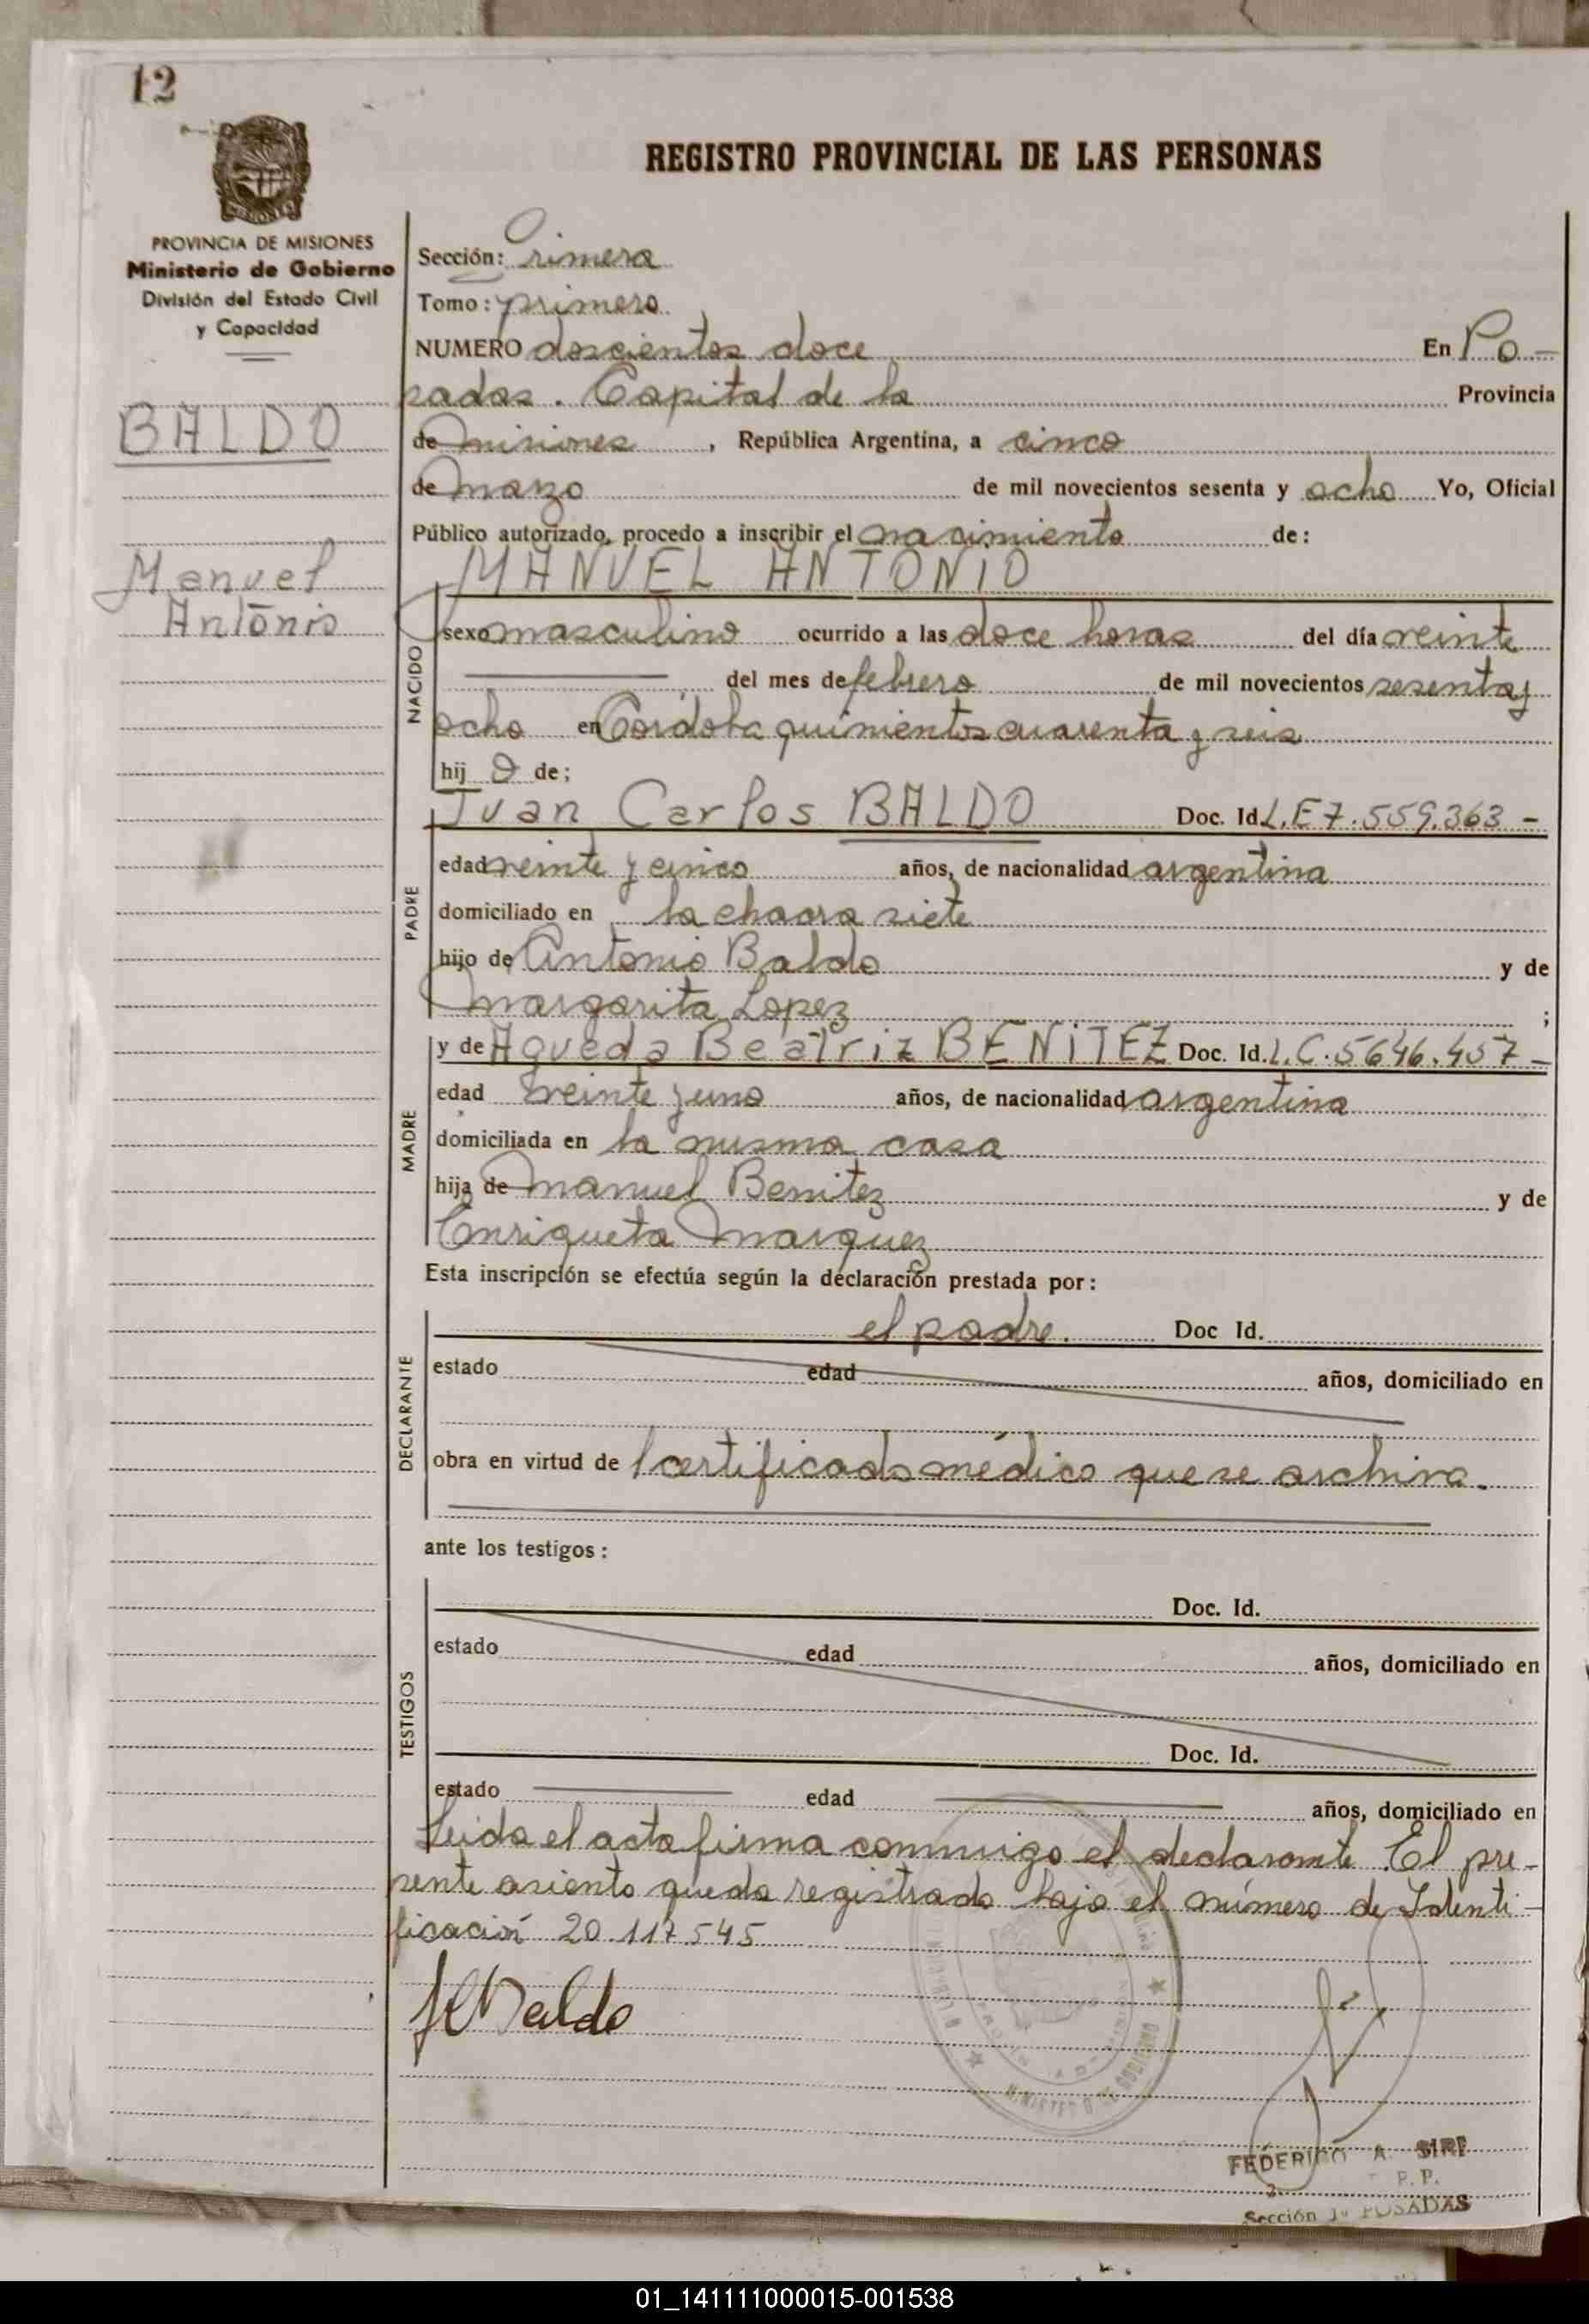 12
REGISTRO PROVINCIAL DE LAS PERSONAS
MISIONES
PROVINCIA DE MISIONES
Ministerio de Gobierno
División del Estado Civil
y Capacidad
BALDO
Manuel
Antonio
Sección: Primera
Tomo: primero
NUMERO doscientos doce En Po-
sadas. Capital de la Provincia
de misiones, República Argentina, a cinco
de marzo de mil novecientos sesenta y ocho Yo, Oficial
Público autorizado, procedo a inscribir el nacimiento de:
MANUEL ANTONIO
NACIDO
sexo masculino ocurrido a las doce horas del día veinte
del mes de febrero de mil novecientos sesenta y
ocho en Córdoba quinientos cuarenta y seis
hijo de;
PADRE
Juan Carlos BALDO Doc. Id. L.E 7.559.363 -
edad veinte y cinco años, de nacionalidad argentina
domiciliado en la chacra siete
hijo de Antonio Baldo y de
margarita Lopez ;
MADRE
y de Agueda Beatriz BENITEZ Doc. Id. L.C. 5646.457 -
edad veinte y uno años, de nacionalidad argentina
domiciliada en la misma casa
hija de manuel Benitez y de
Enriqueta marquez
Esta inscripción se efectúa según la declaración prestada por:
DECLARANTE
el padre. Doc Id.
estado edad años, domiciliado en
obra en virtud de l certificado médico que se archiva.
ante los testigos:
TESTIGOS
Doc. Id.
estado edad años, domiciliado en
Doc. Id.
estado edad años, domiciliado en
Leida el acta firma conmigo el declarante. El pre-
sente asiento queda registrado bajo el número de Identi-
ficación 20.117545
JCBaldo
MINISTERIO DE GOBIERNO
FEDERICO A.
P.P.
Sección 1ª POSADAS
01_141111000015-001538